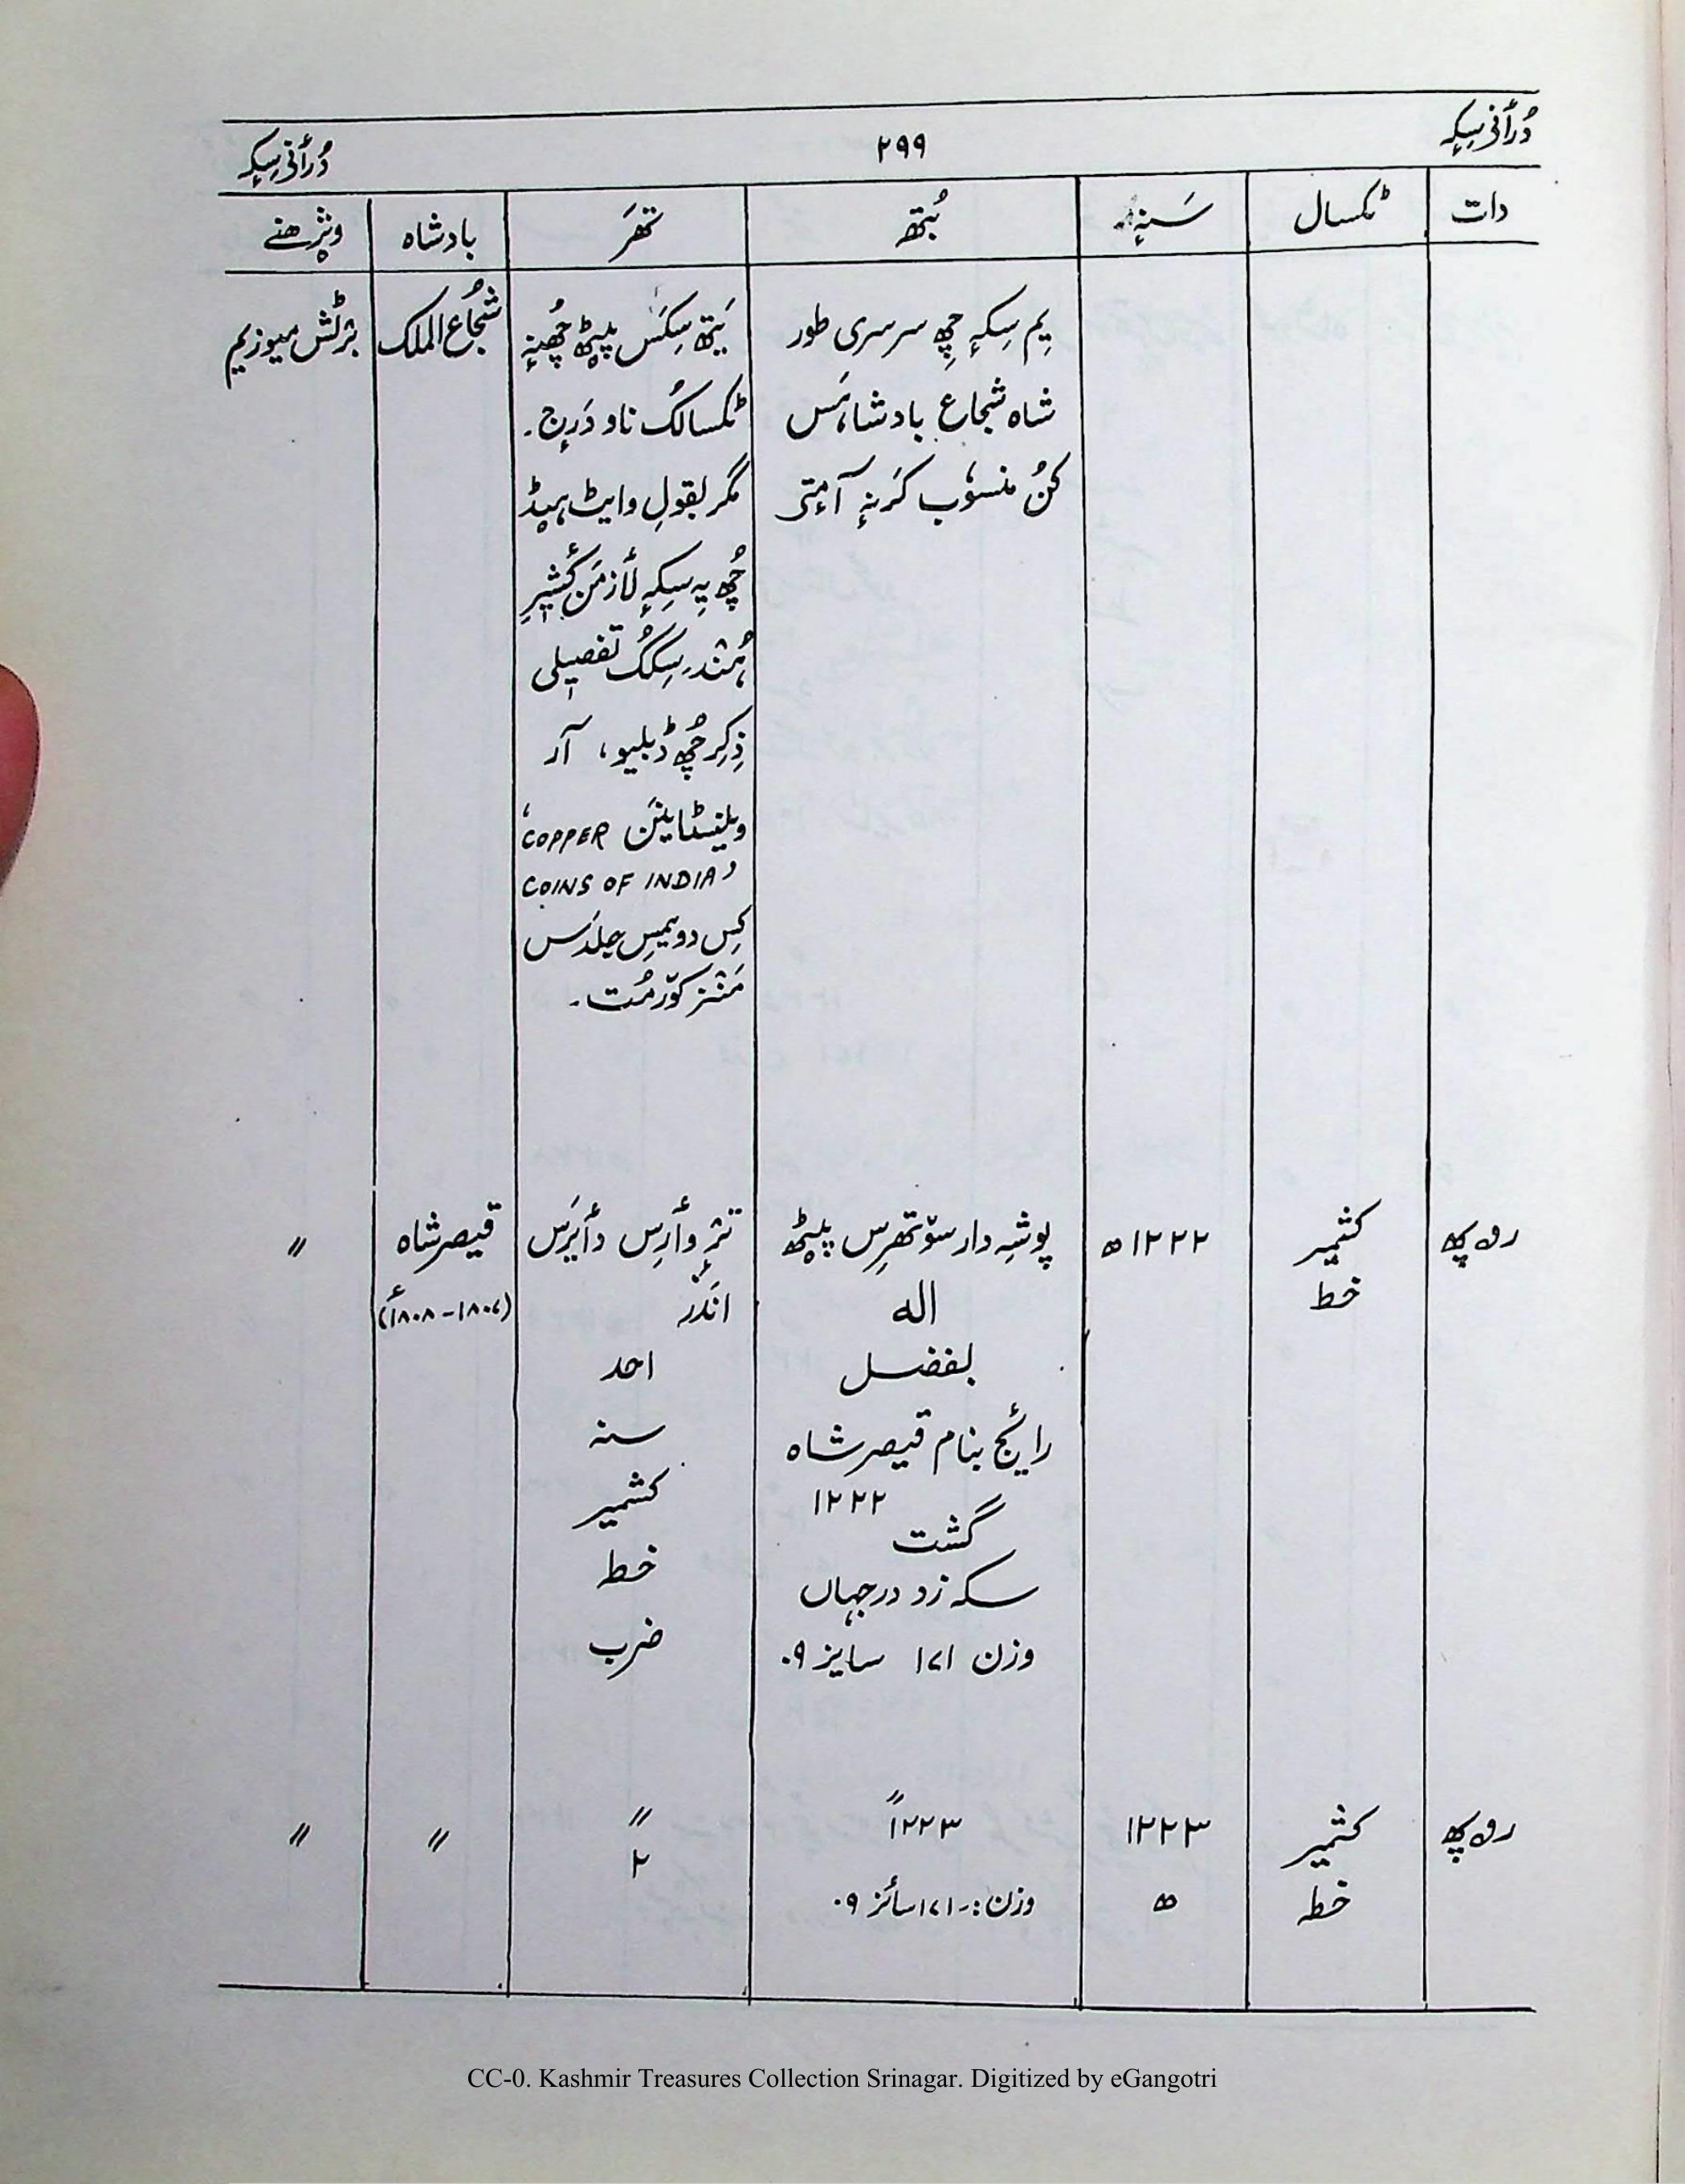 دُرأنی سِکہٕ ۲۹۹ دُرأنی سِکہٕ
دات ٹکسال سَنہٕ بُتھ تھَر بادشاہ وۄژھنے
یِم سِکہٕ چِھ سرسری طور
شاہ شجاع بادشاہَس
کُن منسوٗب کَرنہٕ آمٕتی
یَتھ سِکَس پیٚٹھ چُھنہٕ
ٹکسالُک ناو دَرٕج۔
مگر بقولِ وایٹ ہیڈ
چُھ یہِ سِکہٕ لأزمَن کٔشیٖرِ
ہُنٛد۔ سِکُک تفصیلی
ذِکِر چُھ ڈبلیو، آر
ویلنٹاینَن ‘COPPER
COINS OF INDIA’
کِس دویمِس جلدَس
مَنٛز کوٚرمُت۔
شُجاع الملک
برٹش میوزیم
روپیہ
کشمیر
خط
۱۲۲۲ھ
پوشہِ دار سوٚتھرِس پیٚٹھ
الہ
بفضل
رائج بنام قیصر شاہ
۱۲۲۲
گشت
سکہ زد در جہاں
وزن ۱۷۱ سایز ۰۹
ترٛ وأرِس دأیرَس
اندَر
احد
سنہ
کشمیر
خط
ضرب
قیصر شاہ
(۱۸۰۷-۱۸۰۸ء)
〃
روپیہ
کشمیر
خط
۱۲۲۳
ھ
〃
۱۲۲۳
وزن:۔۱۷۱ سائز ۰۹
〃
۲
〃
〃
CC-0. Kashmir Treasures Collection Srinagar. Digitized by eGangotri